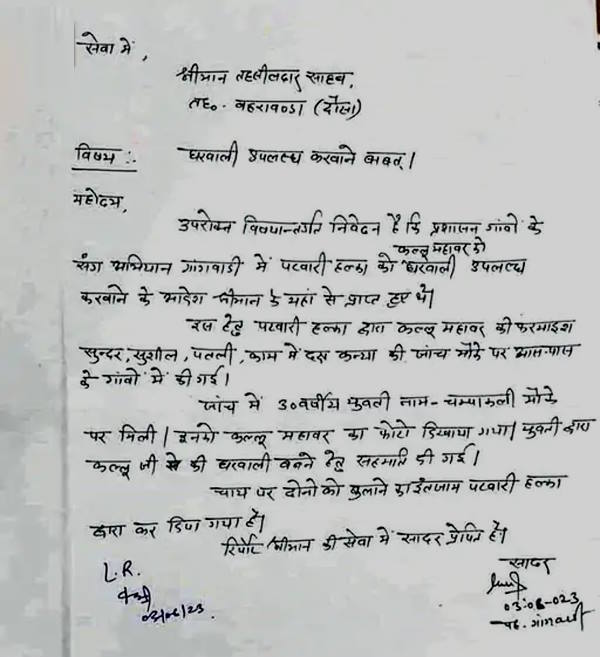 सेवा में,
श्रीमान तहसीलदार साहब,
तह०. बहरावण्डा (दौसा)
विषय :- घरवाली उपलब्ध करवाने बाबत्।
महोदय,
उपरोक्त विषयान्तर्गत निवेदन है कि प्रशासन गांवों के
कल्लू महावर को
संग अभियान गांगदवाडी में पटवारी हल्का को घरवाली उपलब्ध
करवाने के आदेश श्रीमान के यहां से प्राप्त हुए थे।
इस हेतु पटवारी हल्का द्वारा कल्लू महावर की फरमाइश
सुन्दर, सुशील, पतली, काम में दक्ष कन्या की जांच मौके पर आस-पास
के गांवों में की गई।
जांच में 30 वर्षीय युवती नाम - चम्पाकली मौके
पर मिली। इनको कल्लू महावर का फोटो दिखाया गया। युवती द्वारा
कल्लू जी की घरवाली बनने हेतु सहमति दी गई।
चाय पर दोनो को बुलाने का इंतजाम पटवारी हल्का
द्वारा कर दिया गया है।
रिपोर्ट श्रीमान की सेवा में सादर प्रेषित है।
सादर
L.R.
03/06/23
03-06-023